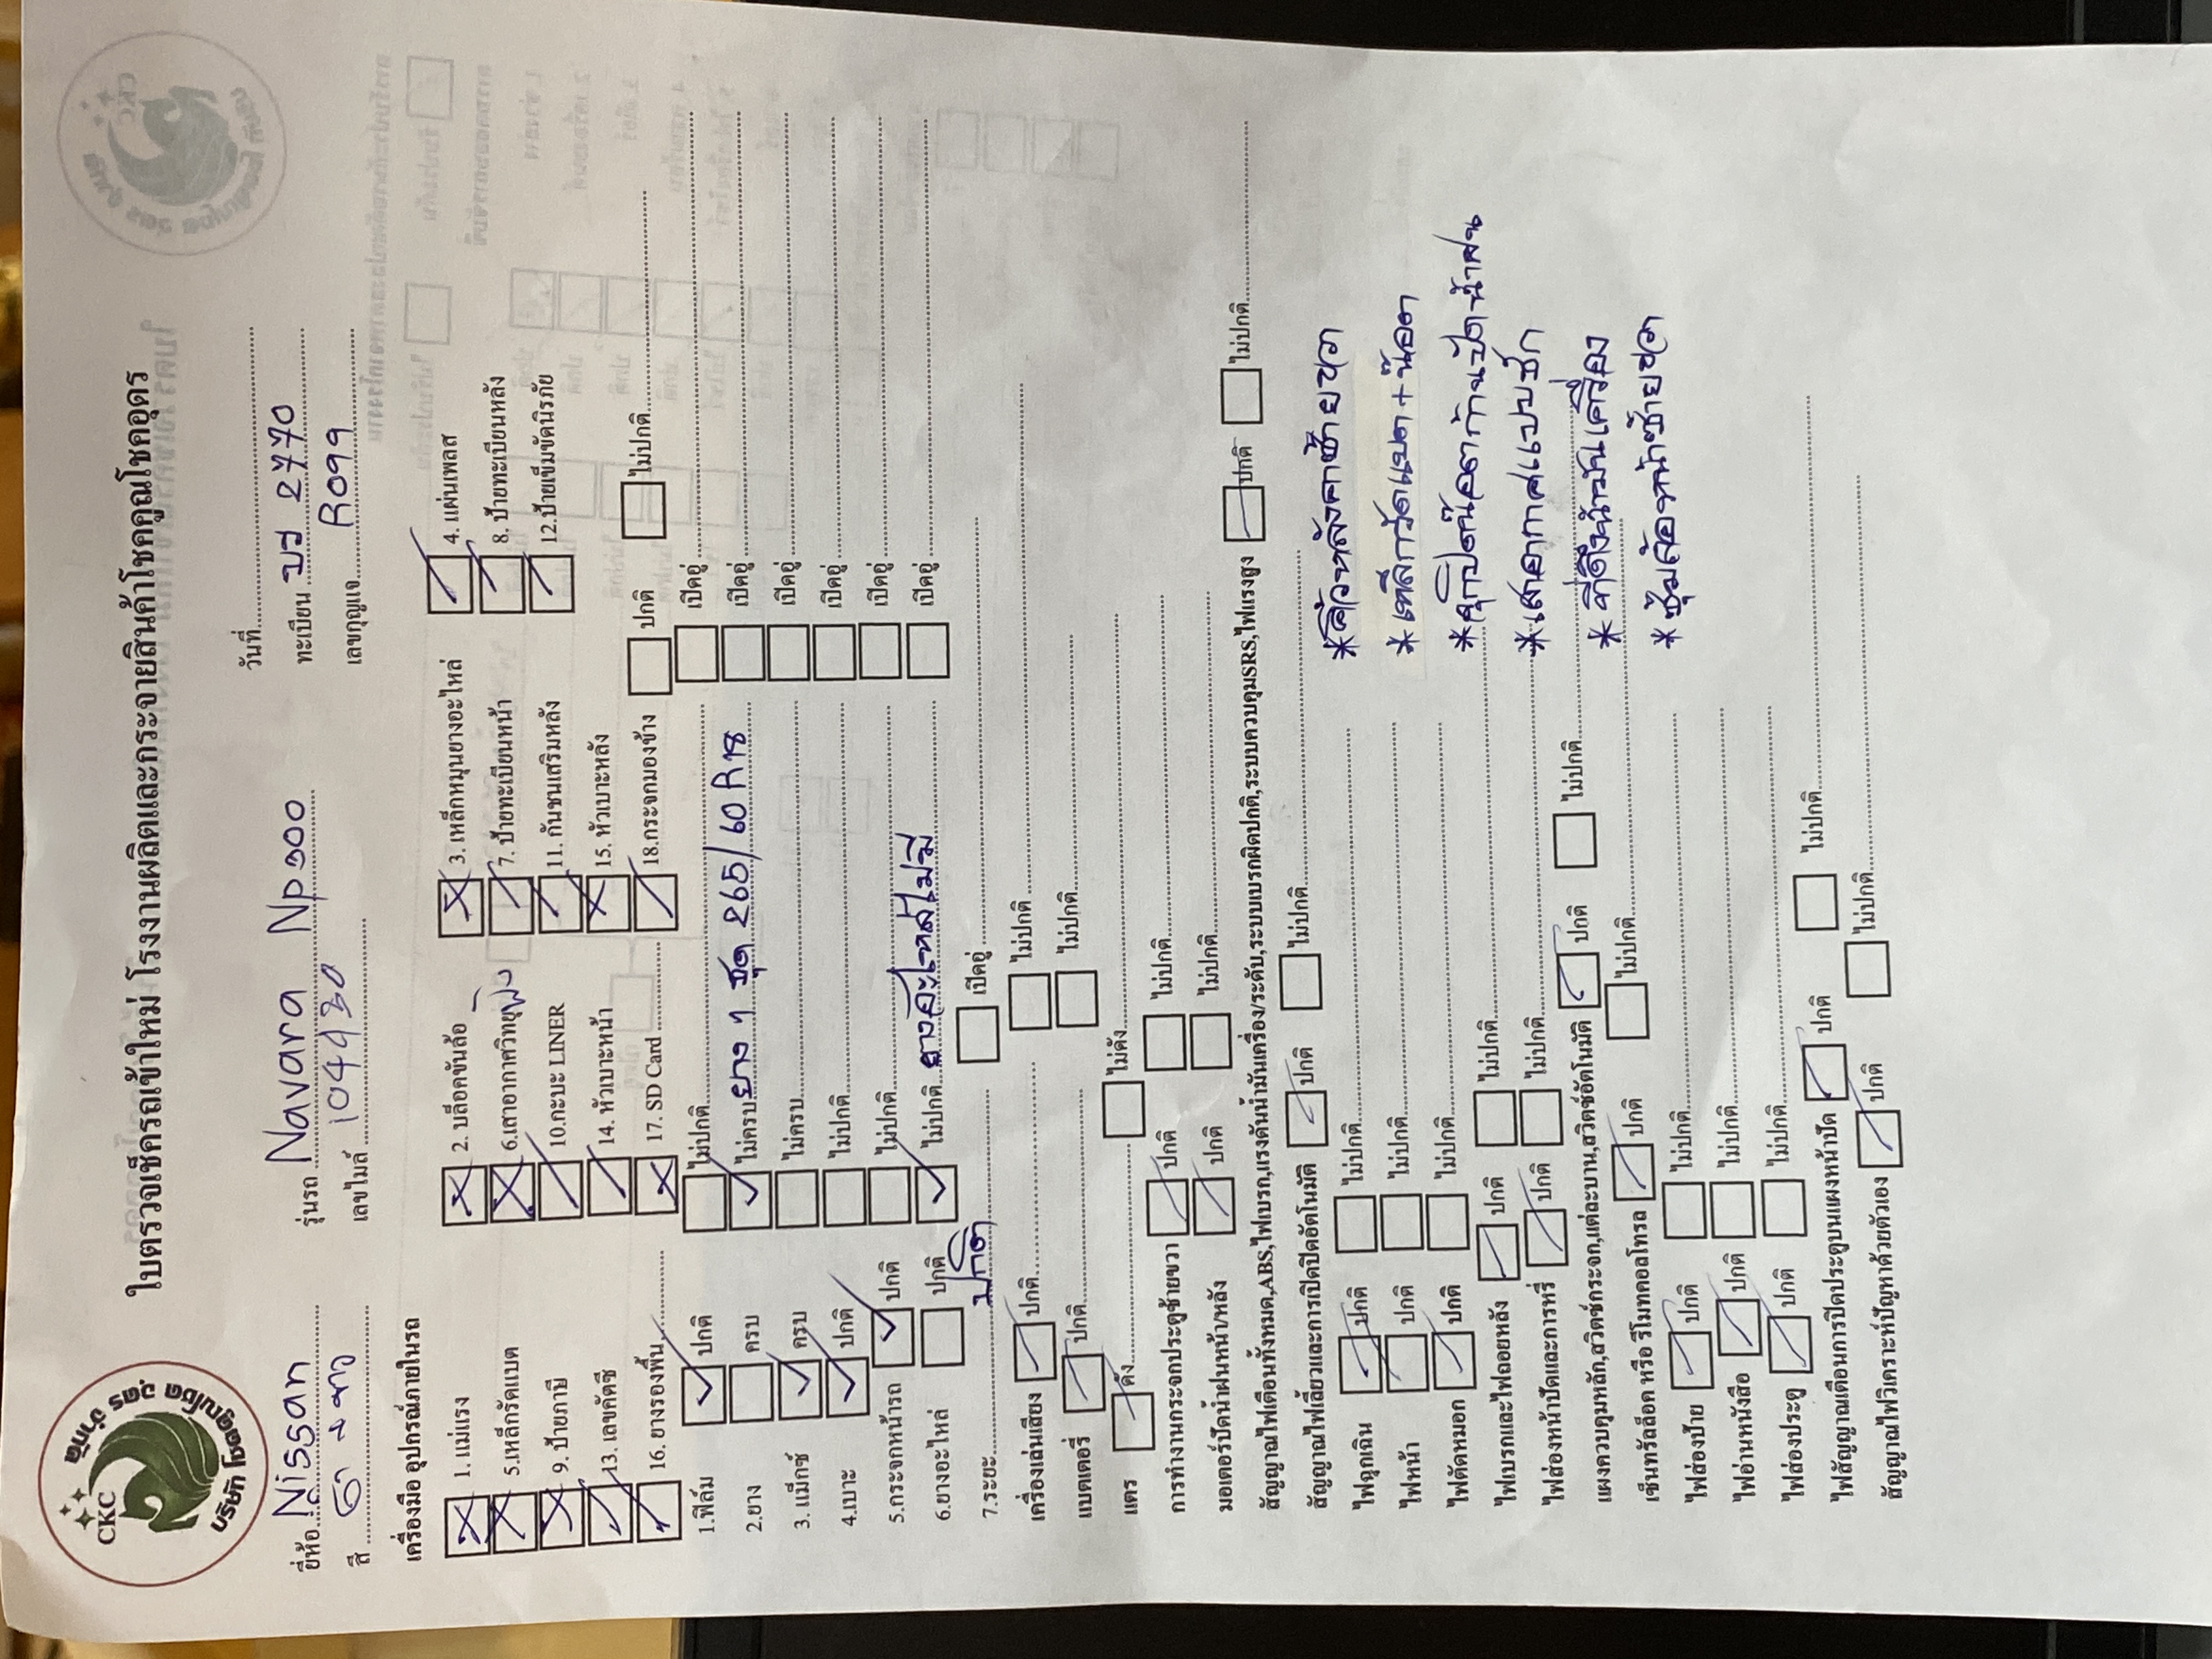 ใบตรวจเช็ครถเข้าใหม่ โรงงานผลิตและกระจายสินค้าโชคคูณโชคอุดร
CKC
บริษัท โชคคูณโชค อุดร จำกัด
วันที่
ยี่ห้อ Nissan รุ่นรถ Navara Np300 ทะเบียน 2770
สี เลขไมล์ 104930 เลขกุญแจ R099
เครื่องมือ อุปกรณ์ภายในรถ
1. แม่แรง 2. บล็อคขันล้อ 3. เหล็กหมุนยางอะไหล่ 4. แผ่นเพลส
5.เหล็กรัดแบต 6.เสาอากาศวิทยุ พัง 7. ป้ายทะเบียนหน้า 8. ป้ายทะเบียนหลัง
9. ป้ายภาษี 10.กะบะ LINER 11. กันชนเสริมหลัง 12.ป้ายเข็มขัดนิรภัย
13. เลขคัดซี 14. หัวเบาะหน้า 15. หัวเบาะหลัง
16. ยางรองพื้น 17. SD Card 18.กระจกมองข้าง ปกติ ไม่ปกติ
1.ฟิล์ม ปกติ ไม่ปกติ เปิดอู่
2.ยาง ครบ ไม่ครบ ยาง 1 ชุด 265/60 R18 เปิดอู่
3. แม็กซ์ ครบ ไม่ครบ เปิดอู่
4.เบาะ ปกติ ไม่ปกติ เปิดอู่
5.กระจกหน้ารถ ปกติ ไม่ปกติ เปิดอู่
6.ยางอะไหล่ ปกติ ไม่ปกติ ยางอะไหล่ไม่มี เปิดอู่
7.ระยะ ปกติ เปิดอู่
เครื่องเล่นเสียง ปกติ ไม่ปกติ
แบตเตอรี่ ปกติ ไม่ปกติ
แตร ดัง ไม่ดัง
การทำงานกระจกประตูซ้ายขวา ปกติ ไม่ปกติ
มอเตอร์ปัดน้ำฝนหน้า/หลัง ปกติ ไม่ปกติ
สัญญาณไฟเตือนทั้งหมด,ABS,ไฟเบรก,แรงดันน้ำมันเครื่อง/ระดับ,ระบบเบรกผิดปกติ,ระบบควบคุมSRS,ไฟแรงสูง ปกติ ไม่ปกติ
สัญญาณไฟเลี้ยวและการเปิดปิดอัตโนมัติ ปกติ ไม่ปกติ
ไฟฉุกเฉิน ปกติ ไม่ปกติ
*คิ้วหลังคาซ้ายขวา
ไฟหน้า ปกติ ไม่ปกติ
*เหล็กรัดแบต+น๊อต
ไฟตัดหมอก ปกติ ไม่ปกติ
*จุกปิดน๊อตก้านปัดน้ำฝน
ไฟเบรกและไฟถอยหลัง ปกติ ไม่ปกติ
*เสาอากาศแบบชัก
ไฟส่องหน้าปัดและการหรี่ ปกติ ไม่ปกติ
*ที่ดึงน้ำมันเครื่อง
แผงควบคุมหลัก,สวิตช์กระจก,แต่ละบาน,สวิตช์อัตโนมัติ ปกติ ไม่ปกติ
*ซุ้มล้อหน้าซ้ายขวา
เซ็นทรัลล็อค หรือ รีโมทคอลโทรล ปกติ ไม่ปกติ
ไฟส่องป้าย ปกติ ไม่ปกติ
ไฟอ่านหนังสือ ปกติ ไม่ปกติ
ไฟส่องประตู ปกติ ไม่ปกติ
ไฟสัญญาณเตือนการปิดประตูบนแผงหน้าปัด ปกติ ไม่ปกติ
สัญญาณไฟวิเคราะห์ปัญหาด้วยตัวเอง ปกติ ไม่ปกติ